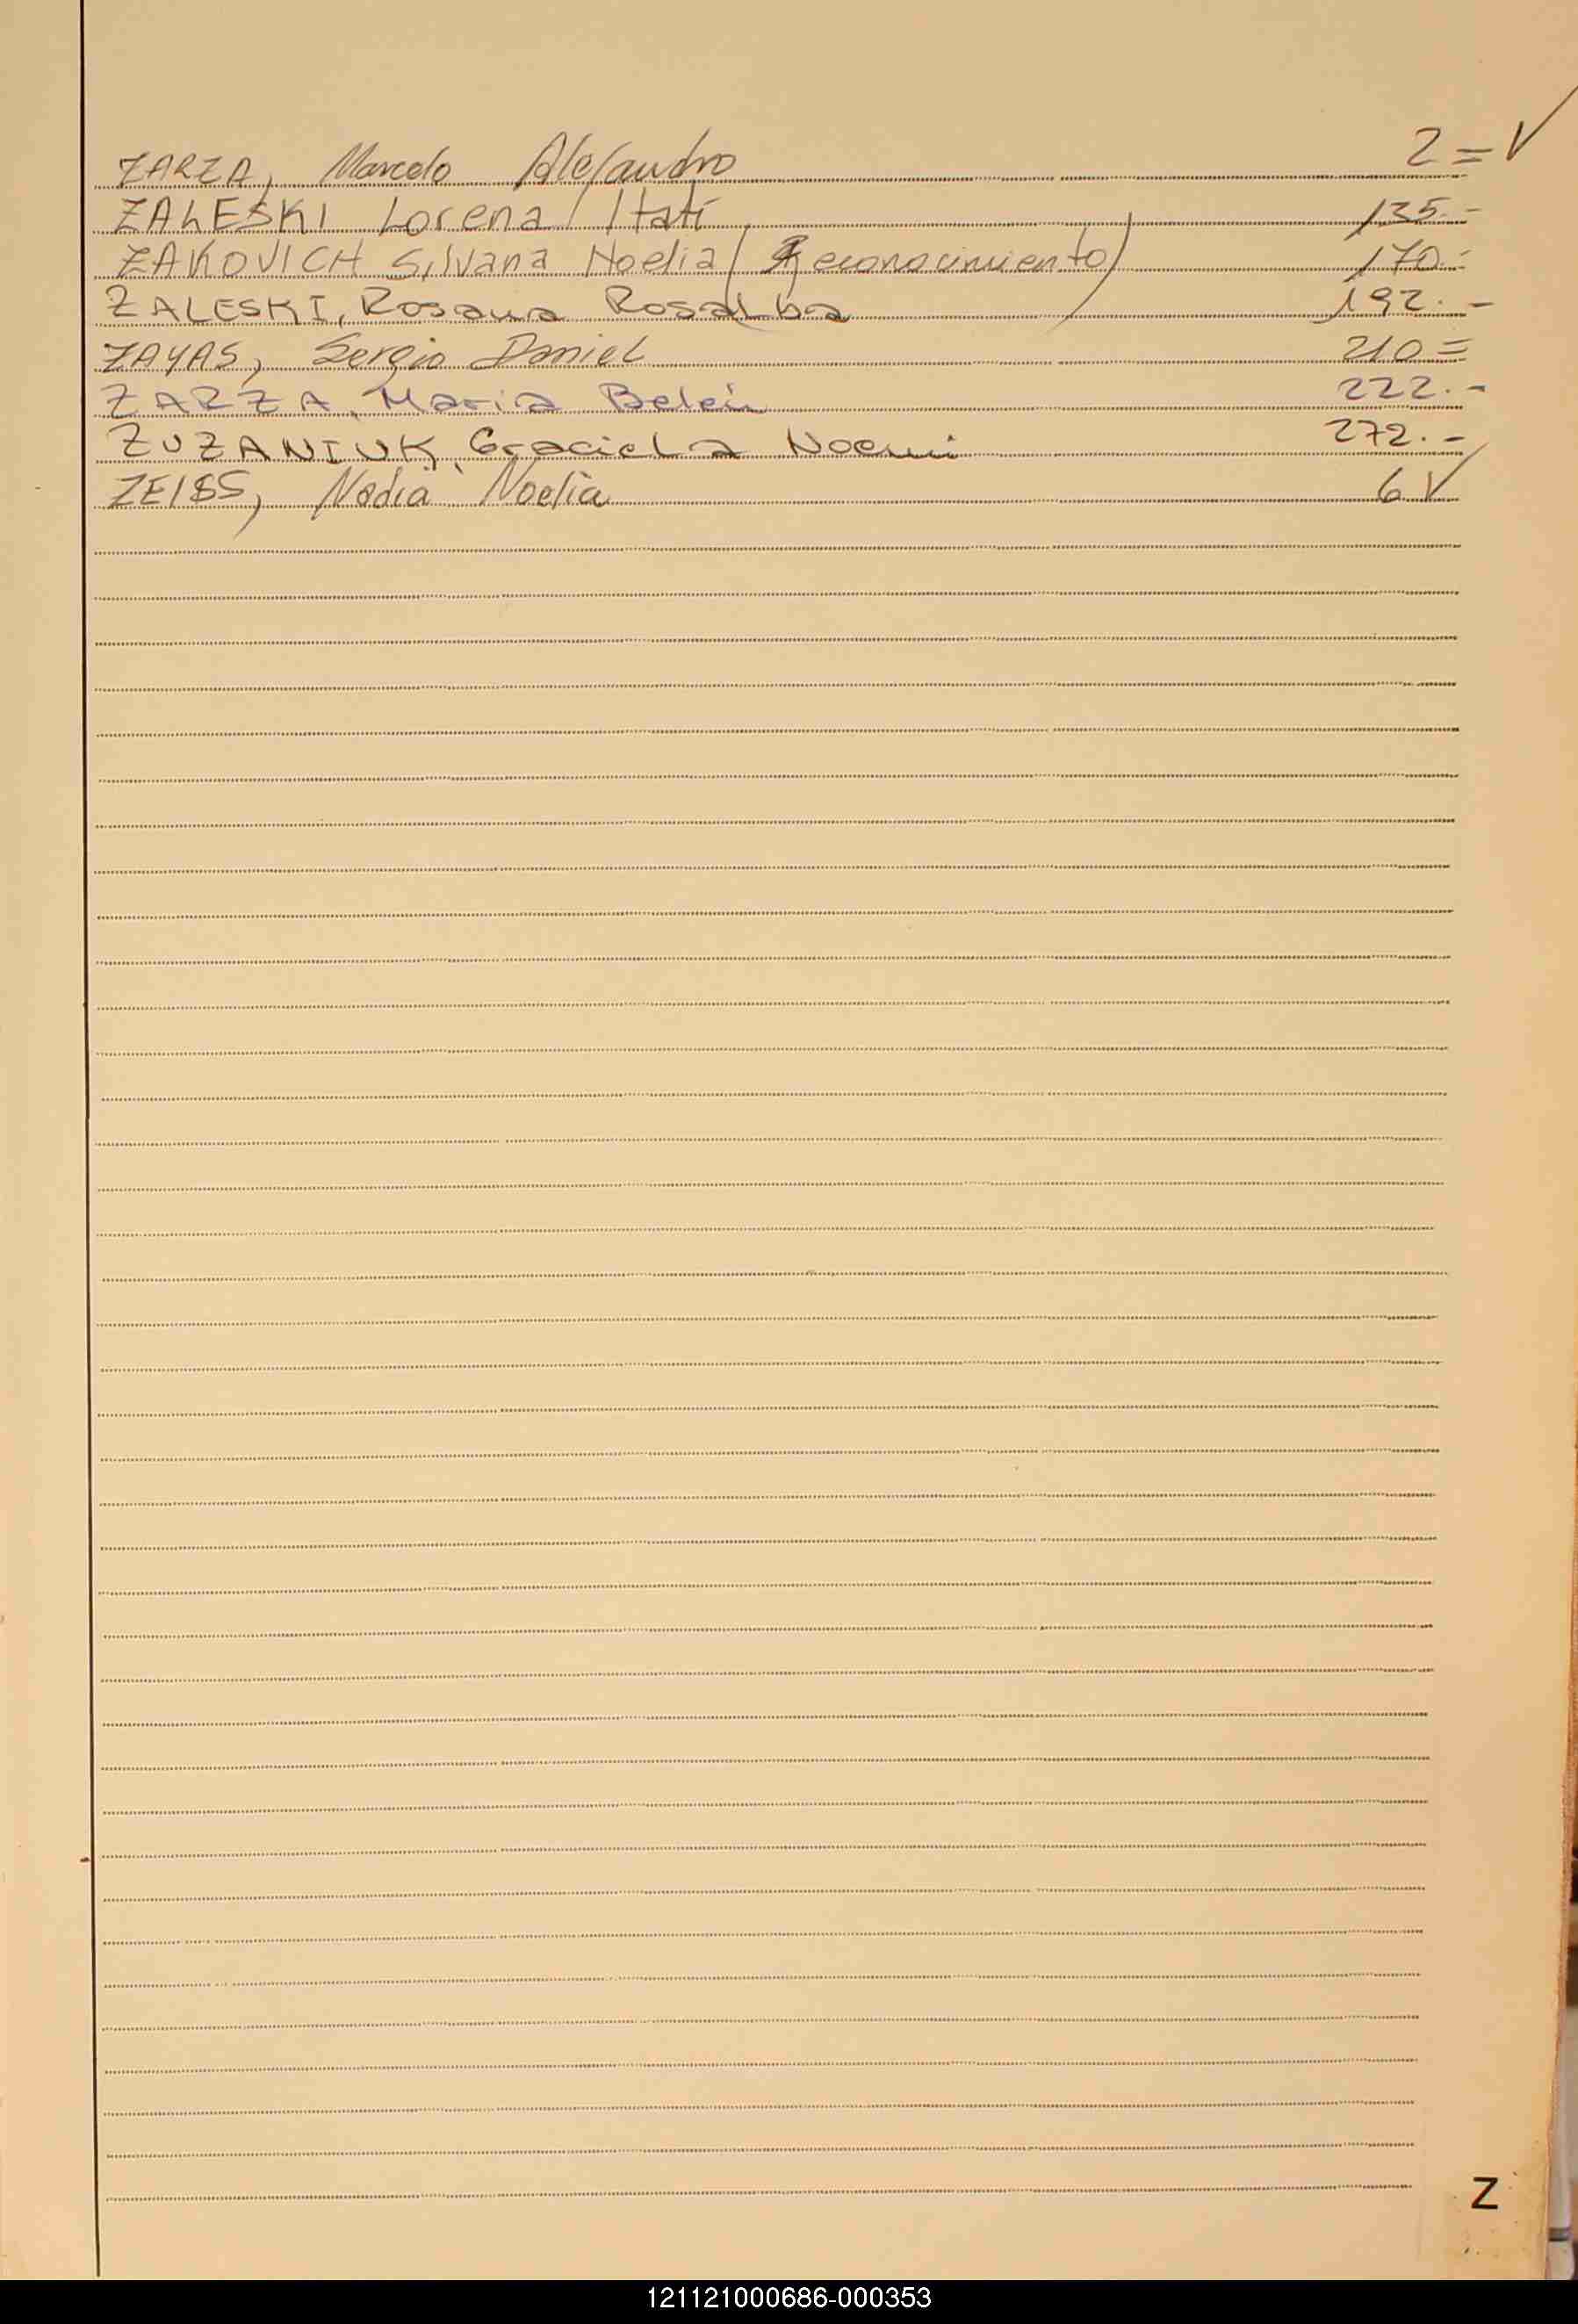 ZARZA, Marcelo Alejandro 2 = V
ZALESKI Lorena Itatí 135.-
ZAKOVICH Silvana Noelia (Reconocimiento) 170.-
ZALESKI, Rosana Rosalba 192.-
ZAYAS, Sergio Daniel 210=
ZARZA, Maria Belén 222.-
ZUZANIUK, Graciela Noemi 272.-
ZEISS, Nadia Noelia 6 V
Z
121121000686-000353